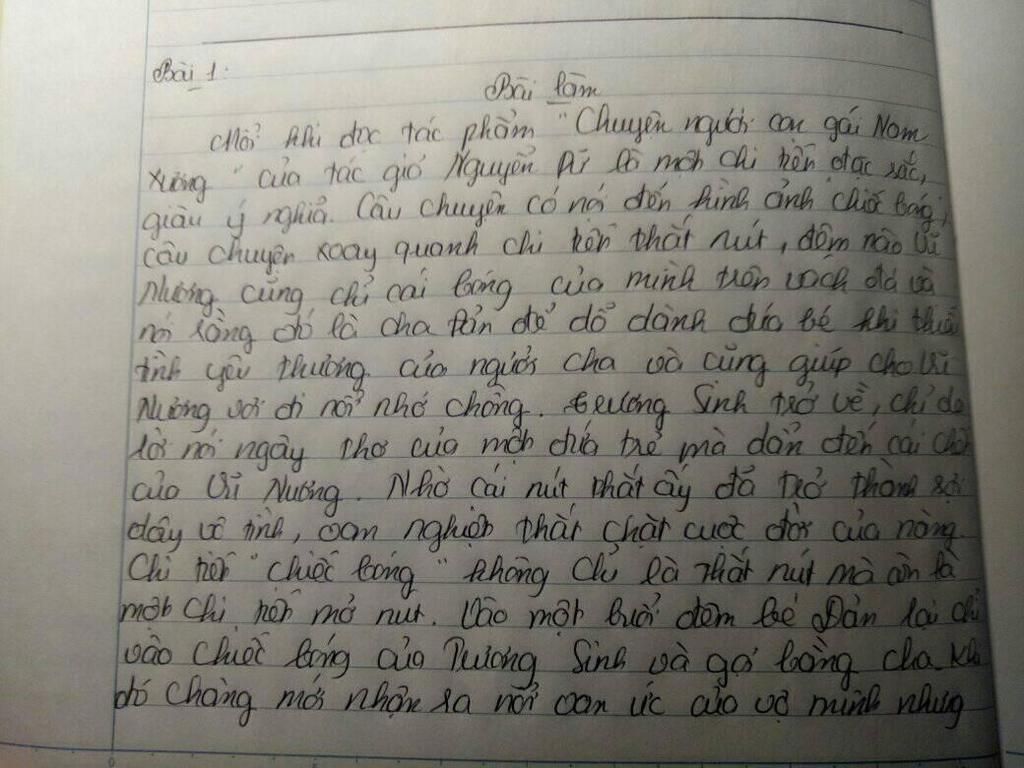 Bài 1:
Bài làm
Mỗi khi đọc tác phẩm "Chuyện người con gái Nam
Xương" của tác giả Nguyễn Dữ là một chi tiết đặc sắc,
giàu ý nghĩa. Câu chuyện có nói đến hình ảnh chiếc bóng,
câu chuyện xoay quanh chi tiết thắt nút, đêm nào Vũ
Nương cũng chỉ cái bóng của mình trên vách đá và
nói rằng đó là cha Đản để dỗ dành đứa bé khi thiếu
tình yêu thương của người cha và cũng giúp cho Vũ
Nương vơi đi nỗi nhớ chồng. Trương Sinh trở về, chỉ do
lời nói ngây thơ của một đứa trẻ mà dẫn đến cái chết
của Vũ Nương. Nhờ cái nút thắt ấy đã trở thành sợi
dây vô tình, oan nghiệt thắt chặt cuộc đời của nàng.
Chi tiết "chiếc bóng" không chỉ là thắt nút mà còn là
một chi tiết mở nút. Vào một buổi đêm bé Đản lại chỉ
vào chiếc bóng của Trương Sinh và gọi bằng cha. Khi
đó chàng mới nhận ra nỗi oan ức của vợ mình nhưng